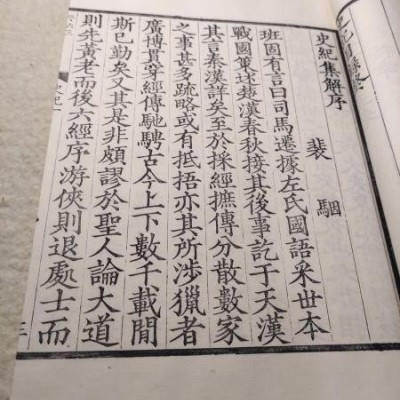 史紀集解序
裴駰
班固有言曰司馬遷據左氏國語采世本
戰國策述楚漢春秋接其後事訖于天漢
其言秦漢詳矣至於採經摭傳分散數家
之事甚多疏略或有抵捂亦其所涉獵者
廣博貫穿經傳馳騁古今上下數千載閒
斯已勤矣又其是非頗謬於聖人論大道
則先黃老而後六經序游俠則退處士而